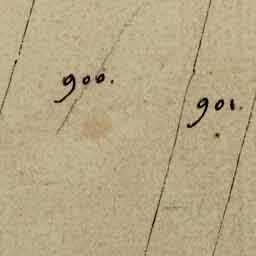 900.
901.